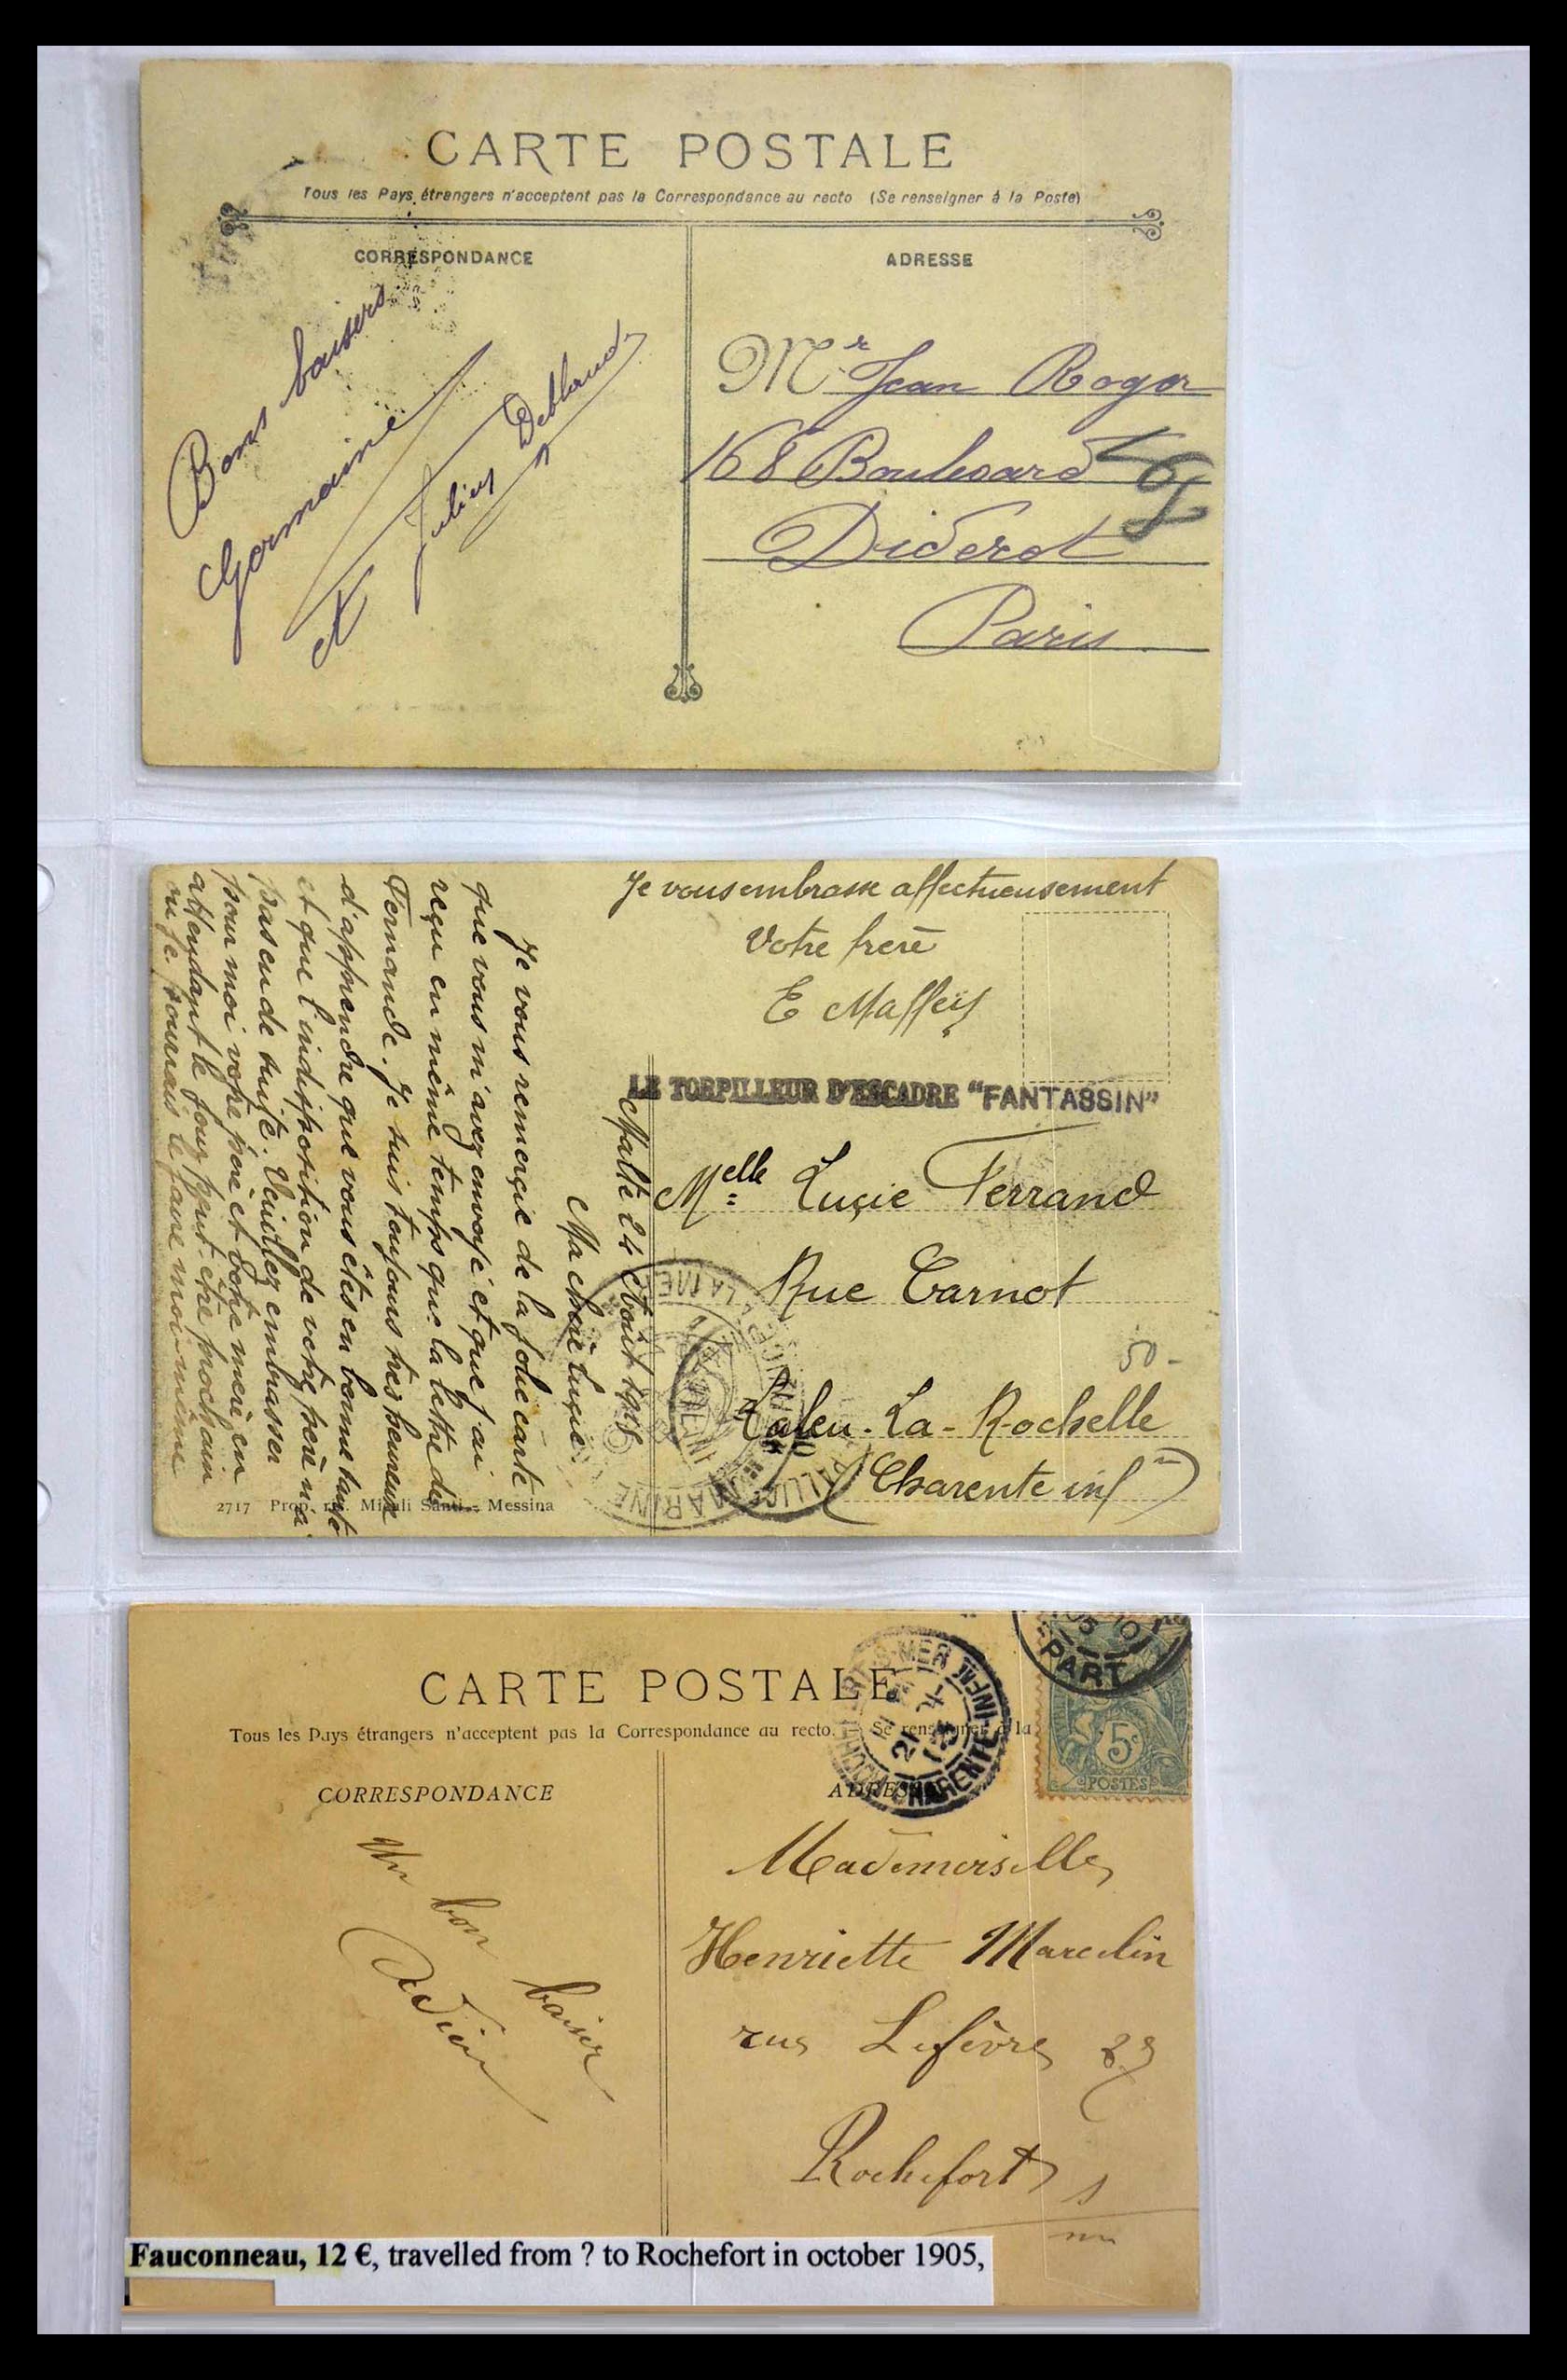 CARTE POSTALE
Tous les Pays étrangers n'acceptent pas la Correspondance au recto (Se renseigner à la Poste)
CORRESPONDANCE
ADRESSE
Bons baisers
Germaine
et Julien
Mr Jean Roger
168 Boulevard
Diderot
Paris
Je vous embrasse affectueusement
Votre frère
E Maffeïs
LE TORPILLEUR D'ESCADRE "FANTASSIN"
Melle Luçie Ferrand
Rue Carnot
Laleu. La-Rochelle
(Charente infre)
50-
Malte 24 Août 1918
Ma chère Luçie.
Je vous remerçie de la jolie carte
que vous m'avez envoyé et que j'ai
reçu en même temps que la lettre de
Fernande. Je suis toujours très heureux
d'apprendre que vous êtes en bonne santé
et que l'indisposition de votre frère n'a
pas eu de suite. Veuillez embrasser
pour moi votre père et votre mère, en
attendant le jour peut être prochain
ou je pourrais le faire moi même
2717 Prop. ris. Micali Santi - Messina
CARTE POSTALE
Tous les Pays étrangers n'acceptent pas la Correspondance au recto. Se renseigner à la
CORRESPONDANCE
ADRESSE
05 10
PART
5c
POSTES
S-MER
CHARENTE-INFRE
21
Un bon baiser
Adieu
Mademoiselle
Henriette Marcelin
rue Lefèvre 29
Rochefort s
m
Fauconneau, 12 €, travelled from ? to Rochefort in october 1905,